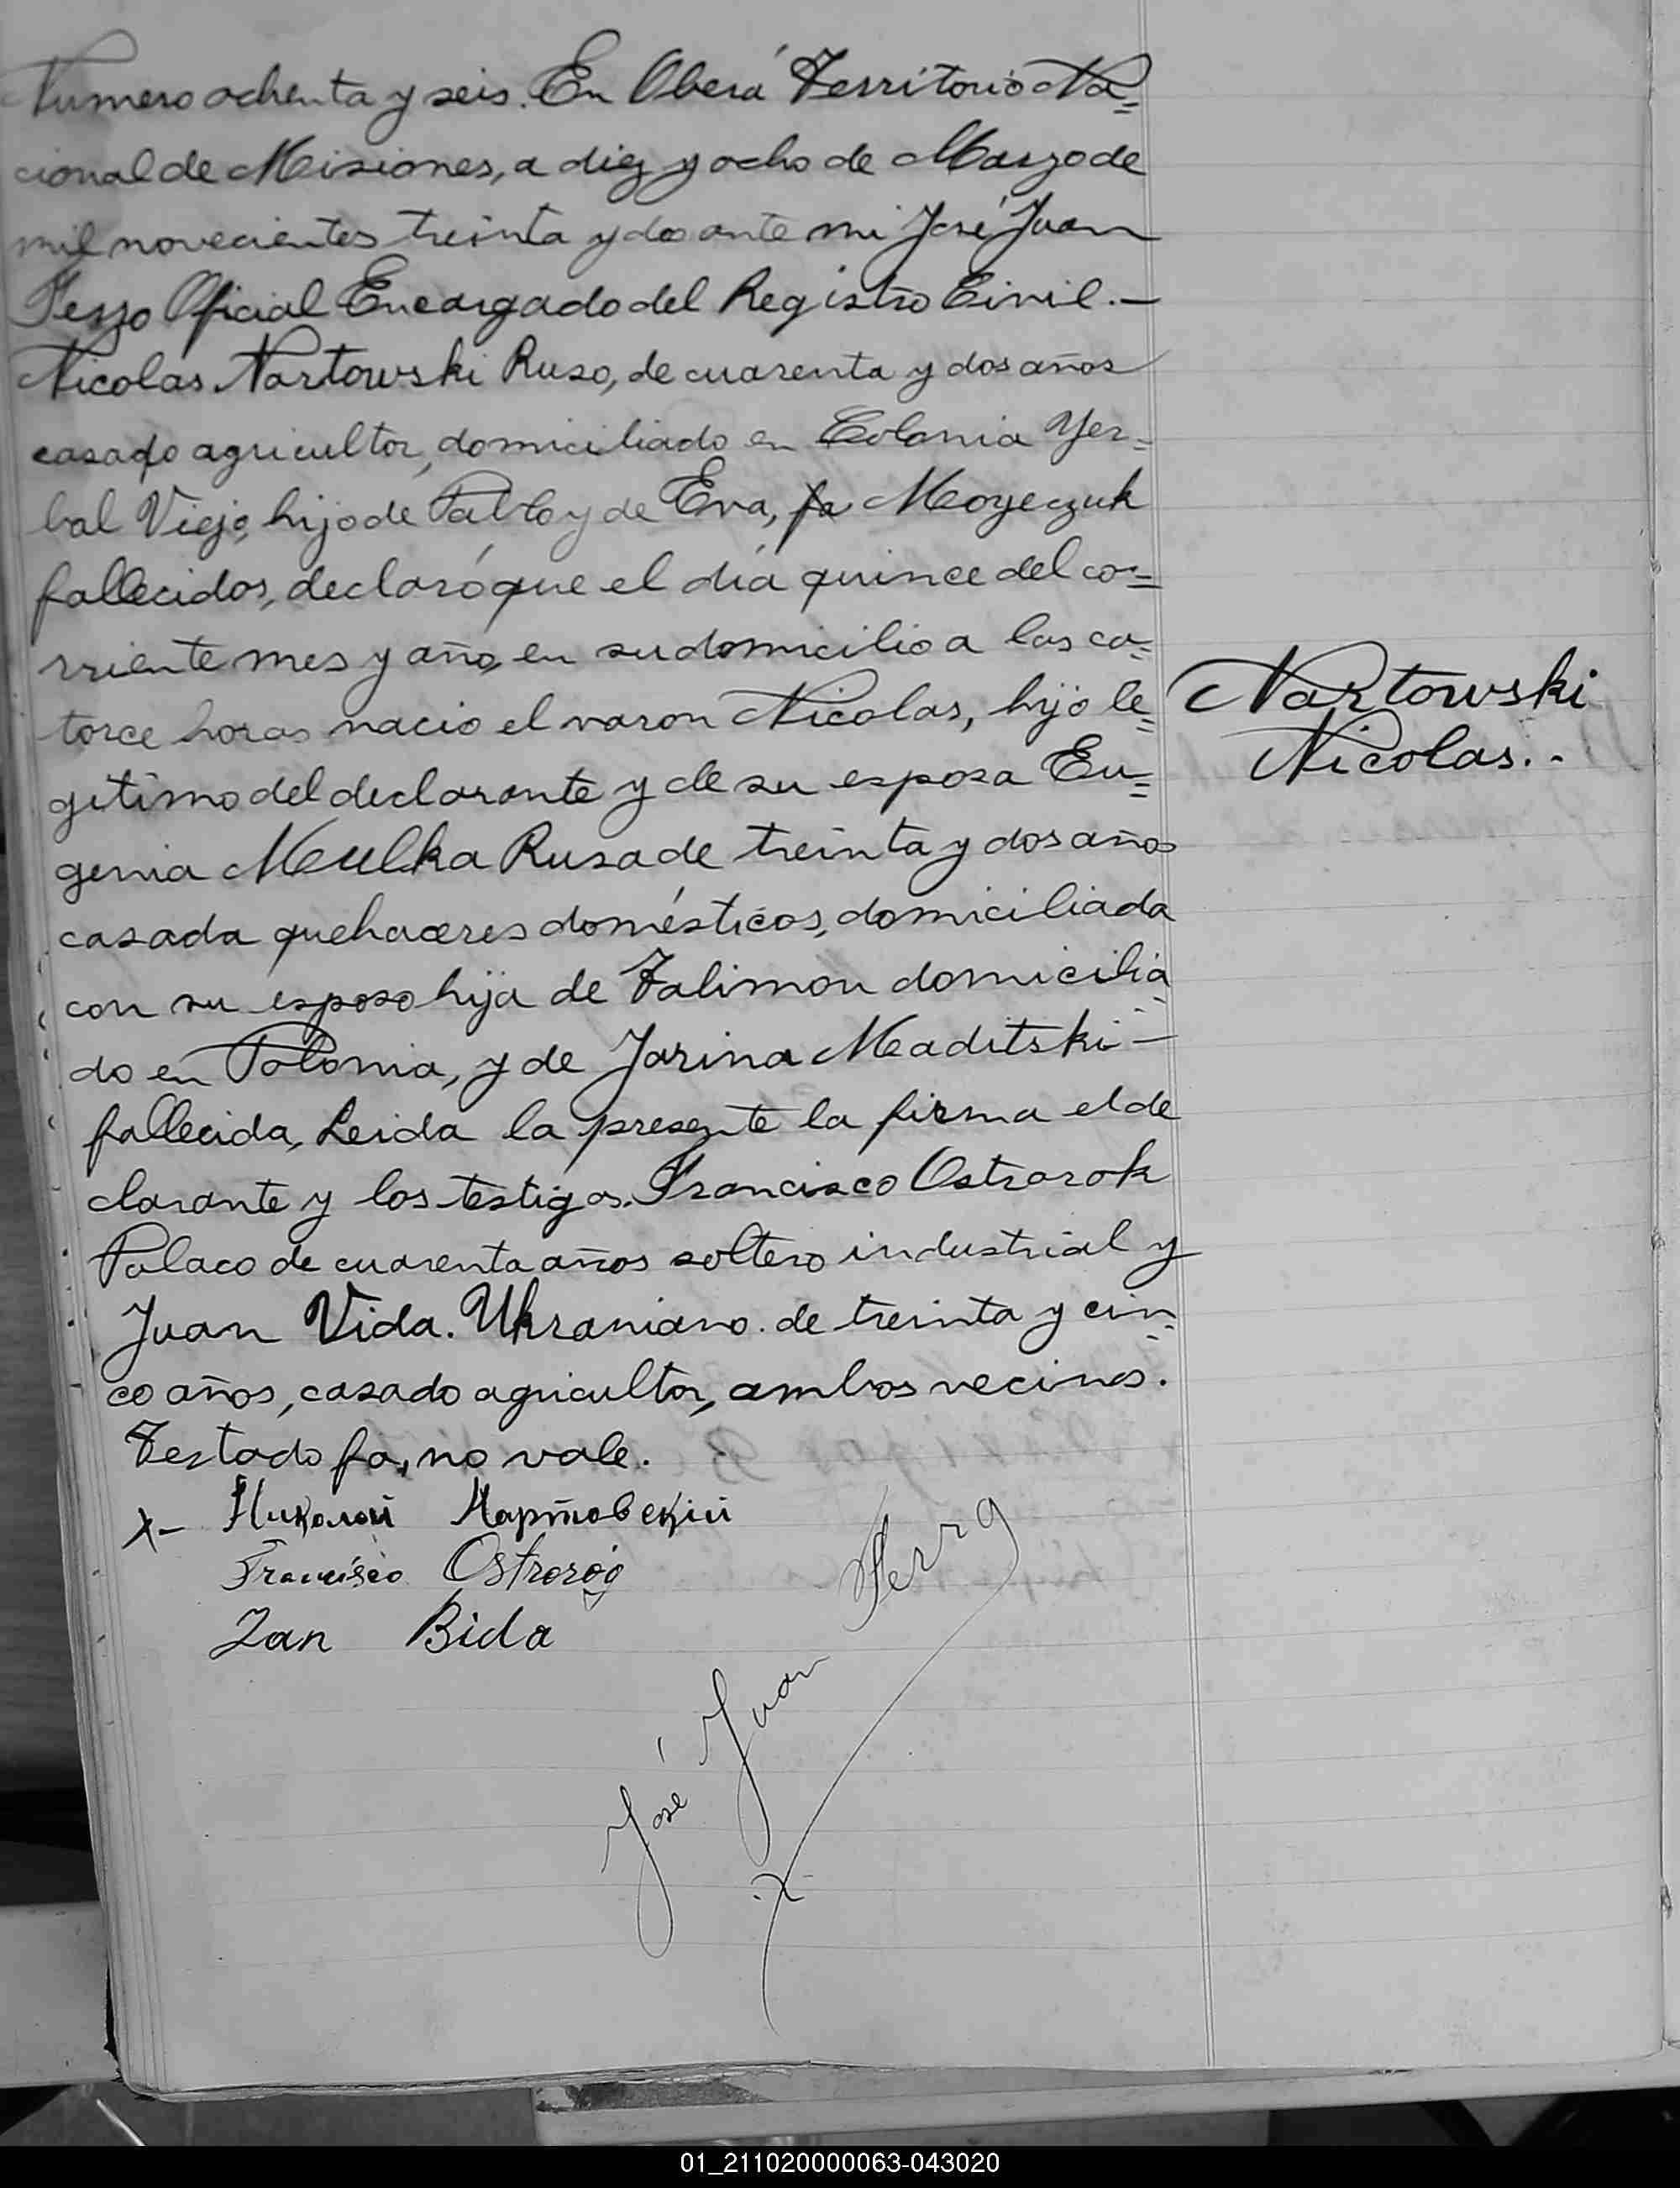 Numero ochenta y seis. En Oberá Territorio Na=
cional de Misiones, a diez y ocho de Marzo de
mil novecientos treinta y dos ante mi José Juan
Oficial Encargado del Registro Civil.—
Nicolas Nartowski Ruso, de cuarenta y dos años
casado agricultor, domiciliado en Colonia Yer=
bal Viejo, hijo de Pablo y de Eva, fa Moyeczuk
fallecidos, declaró que el día quince del co=
rriente mes y año, en su domicilio a las ca=
torce horas nacio el varon Nicolas, hijo le=
gitimo del declarante y de su esposa Eu=
genia Meulka Rusa de treinta y dos años
casada quehaceres domésticos, domiciliada
con su esposo hija de Talimon domicilia=
do en Polonia, y de Jarina Maditski —
fallecida, Leida la presente la firma el de
clarante y los testigos. Francisco Ostrorok
Polaco de cuarenta años soltero industrial y
Juan Vida. Ukraniano. de treinta y cin=
co años, casado agricultor, ambos vecinos.
Testado fa, no vale.
Nartowski
Nicolas..
x— Николай Нартовскій
Francisco Ostroróg
Jan Bida
José Juan
01_211020000063-043020